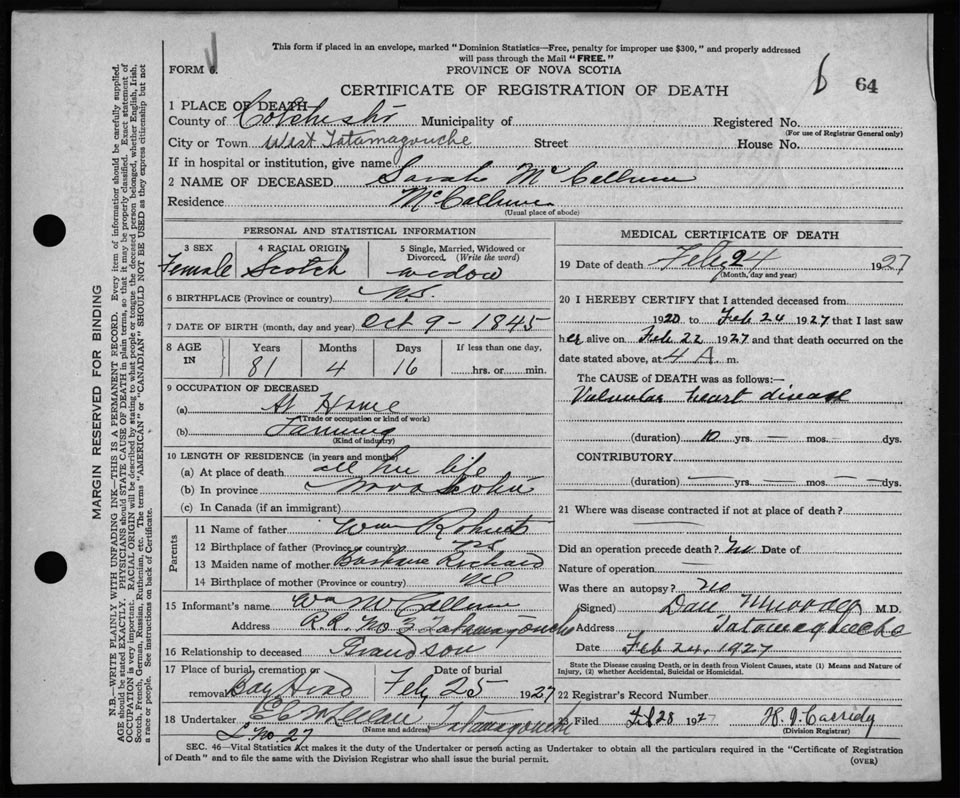 This form if placed in an envelope, marked "Dominion Statistics—Free, penalty for improper use $300," and properly addressed
will pass through the Mail "FREE."
FORM 6.
PROVINCE OF NOVA SCOTIA
64
CERTIFICATE OF REGISTRATION OF DEATH
1 PLACE OF DEATH—
County of Colchester Municipality of Registered No.
(For use of Registrar General only)
City or Town West Tatamagouche Street House No.
If in hospital or institution, give name
2 NAME OF DECEASED Sarah McCallum
Residence McCallum
(Usual place of abode)
PERSONAL AND STATISTICAL INFORMATION
3 SEX 4 RACIAL ORIGIN 5 Single, Married, Widowed or Divorced. (Write the word)
Female Scotch widow
6 BIRTHPLACE (Province or country) N.S.
7 DATE OF BIRTH (month, day and year) Oct 9 - 1845
8 AGE IN Years Months Days If less than one day,
81 4 16 hrs. or min.
9 OCCUPATION OF DECEASED
(a) At Home
(Trade or occupation or kind of work)
(b) Farming
(Kind of industry)
10 LENGTH OF RESIDENCE (in years and months)
(a) At place of death all her life
(b) In province Nova Scotia
(c) In Canada (if an immigrant)
Parents
11 Name of father Wm Roberts
12 Birthplace of father (Province or country) NS
13 Maiden name of mother Richard
14 Birthplace of mother (Province or country)
15 Informant's name Wm McCallum
Address R.R. No 3 Tatamagouche
16 Relationship to deceased Grandson
17 Place of burial, cremation or removal Bay Head Date of burial Feby 25 1927
18 Undertaker Tatamagouche
(Name and address)
L No 27
MEDICAL CERTIFICATE OF DEATH
19 Date of death Feby 24 1927
(Month, day and year)
20 I HEREBY CERTIFY that I attended deceased from
1920 to Feb 24 1927 that I last saw
her alive on Feb 22 1927 and that death occurred on the
date stated above, at 4 A. m.
The CAUSE of DEATH was as follows:—
Valvular heart disease
(duration) 10 yrs. — mos. — dys.
CONTRIBUTORY
(duration) — yrs. — mos. — dys.
21 Where was disease contracted if not at place of death?
Did an operation precede death? no Date of
Nature of operation —
Was there an autopsy? no
(Signed) Dan Murray M.D.
Address Tatamagouche
Date Feb 24, 1927
State the Disease causing Death, or in death from Violent Causes, state (1) Means and Nature of
Injury, (2) whether Accidental, Suicidal or Homicidal.
22 Registrar's Record Number
23 Filed Feb 28 1927 Cassidy
(Division Registrar)
SEC. 46—Vital Statistics Act makes it the duty of the Undertaker or person acting as Undertaker to obtain all the particulars required in the "Certificate of Registration
of Death" and to file the same with the Division Registrar who shall issue the burial permit.
(OVER)
MARGIN RESERVED FOR BINDING
N.B.—WRITE PLAINLY WITH UNFADING INK—THIS IS A PERMANENT RECORD. Every item of information should be carefully supplied.
AGE should be stated EXACTLY. PHYSICIANS should STATE CAUSE OF DEATH in plain terms, so that it may be properly classified. Exact statement of
OCCUPATION is very important. RACIAL ORIGIN will be described by stating to what people or tongue the deceased person belonged, whether English, Irish,
Scotch, French, German, Russian, Ruthenian, etc. The terms "AMERICAN" or "CANADIAN" SHOULD NOT BE USED as they express citizenship but not
a race or people. See instructions on back of Certificate.